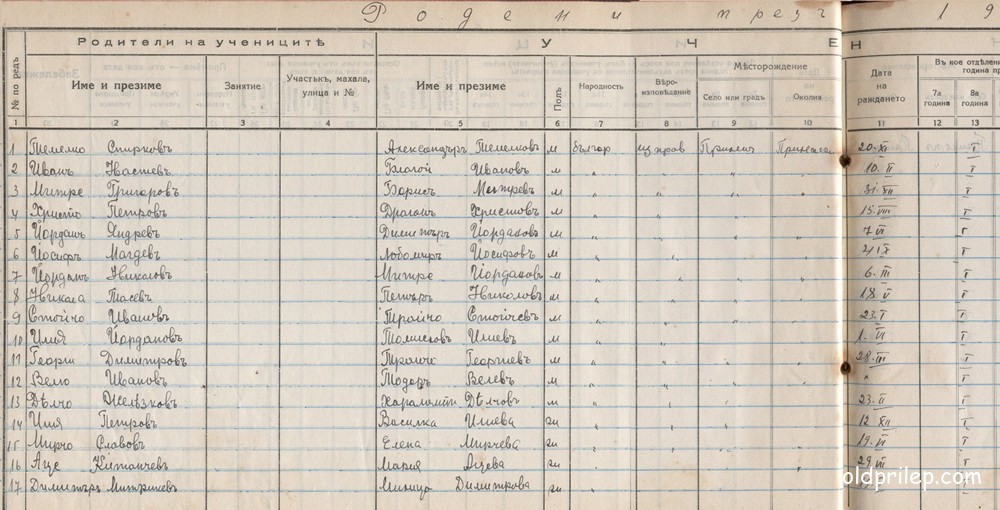 Родени презъ 19
Родители на учениците У Ч Е Н
№ по редъ Име и презиме Занятие Участъкъ, махала, улица и № Име и презиме Полъ Народность Вѣро-изповѣдание Мѣсторождение Село или градъ Околия Дата на раждането Въ кое отдѣлени година пр 7а година 8а година
1 2 3 4 5 6 7 8 9 10 11 12 13
1 Темелко Спирковъ Александъръ Темелковъ м българ изправ Прилепъ Прилепска 20.XI I
2 Иванъ Настевъ Благой Ивановъ м " " " " 10.II I
3 Митре Григоровъ Борисъ Митревъ м " " " " 31.XII I
4 Христо Петровъ Драганъ Христовъ м " " " " 15.VIII I
5 Йорданъ Андревъ Димитъръ Йордановъ м " " " " 7.VI I
6 Йосифъ Магдевъ Любомиръ Йосифовъ м " " " " I
7 Йорданъ Николовъ Митре Йордановъ м " " " " 6.III I
8 Никола Тасевъ Петъръ Николовъ м " " " " 18.V I
9 Стойчо Ивановъ Трайчо Стойчевъ м " " " " 23.I I
10 Илия Йордановъ Илиевъ м " " " " 1.VI I
11 Георги Димитровъ Трайче Георгиевъ м " " " " 28.III I
12 Вело Ивановъ Тодоръ Велевъ м " " " " " I
13 Дѣлчо Желѣзковъ Харалампи Дѣлчовъ м " " " " 23.II I
14 Илия Петровъ Василка Илиева ж " " " " 12.XII I
15 Мирчо Славовъ Елена Мирчева ж " " " " 19.VI I
16 Аце Китанчевъ Мария Ацева ж " " " " 29.VII I
17 Димитъръ Митрушевъ Димитрова ж " " " "
oldprilep.com